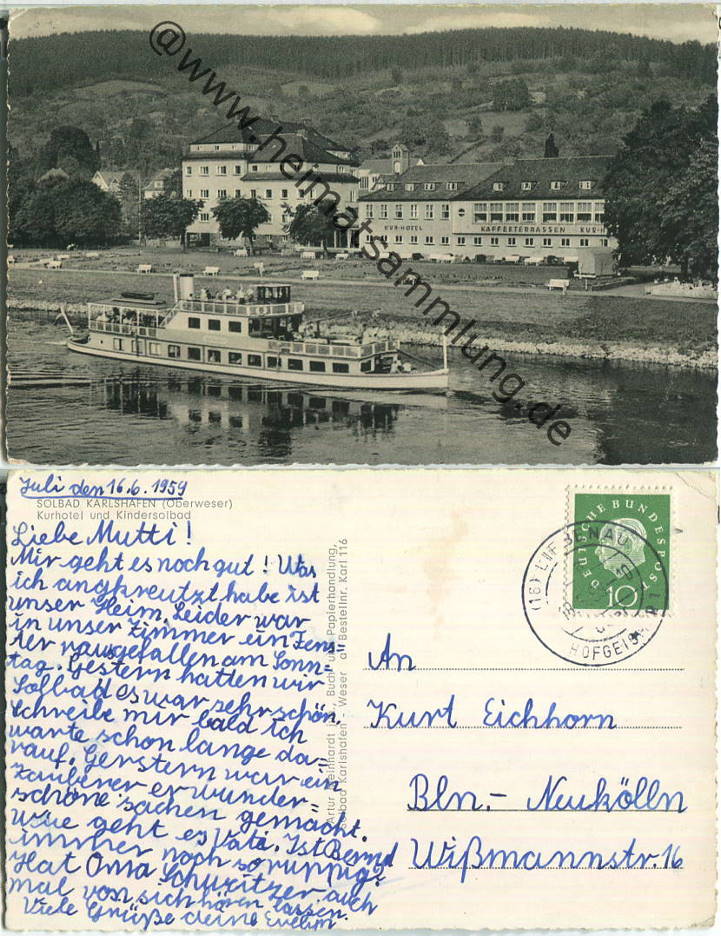 @www.heimat-sammlung.de
KUR-HOTEL
KAFFEETERRASSEN
Juli den 16.6. 1959
SOLBAD KARLSHAFEN (Oberweser)
Kurhotel und Kindersolbad
Liebe Mutti!
Mir geht es noch gut! Was
ich angkreutzt habe ist
unser Heim. Leider war
in unser Zimmer ein Fens-
ter rausgefallen am Sonn-
tag. Gestern hatten wir
Solbad es war sehr schön.
Schreibe mir bald ich
warte schon lange da-
rauf. Gerstern war ein
Zauberer er wunder-
schöne sachen gemacht.
Wie geht es Vati. Ist Bernd
immher noch so ruppig?
Hat Oma Schwitzer auch
mal von sich hören lassen.
Viele Grüße deine Evelyn
Buch- und Papierhandlung,
Solbad Karlshafen - Weser Bestellnr. Karl 116
DEUTSCHE BUNDESPOST
10
(16) LIEBENAU
HOFGEISMAR
An
Kurt Eichhorn
Bln.- Neukölln
Wißmannstr. 16